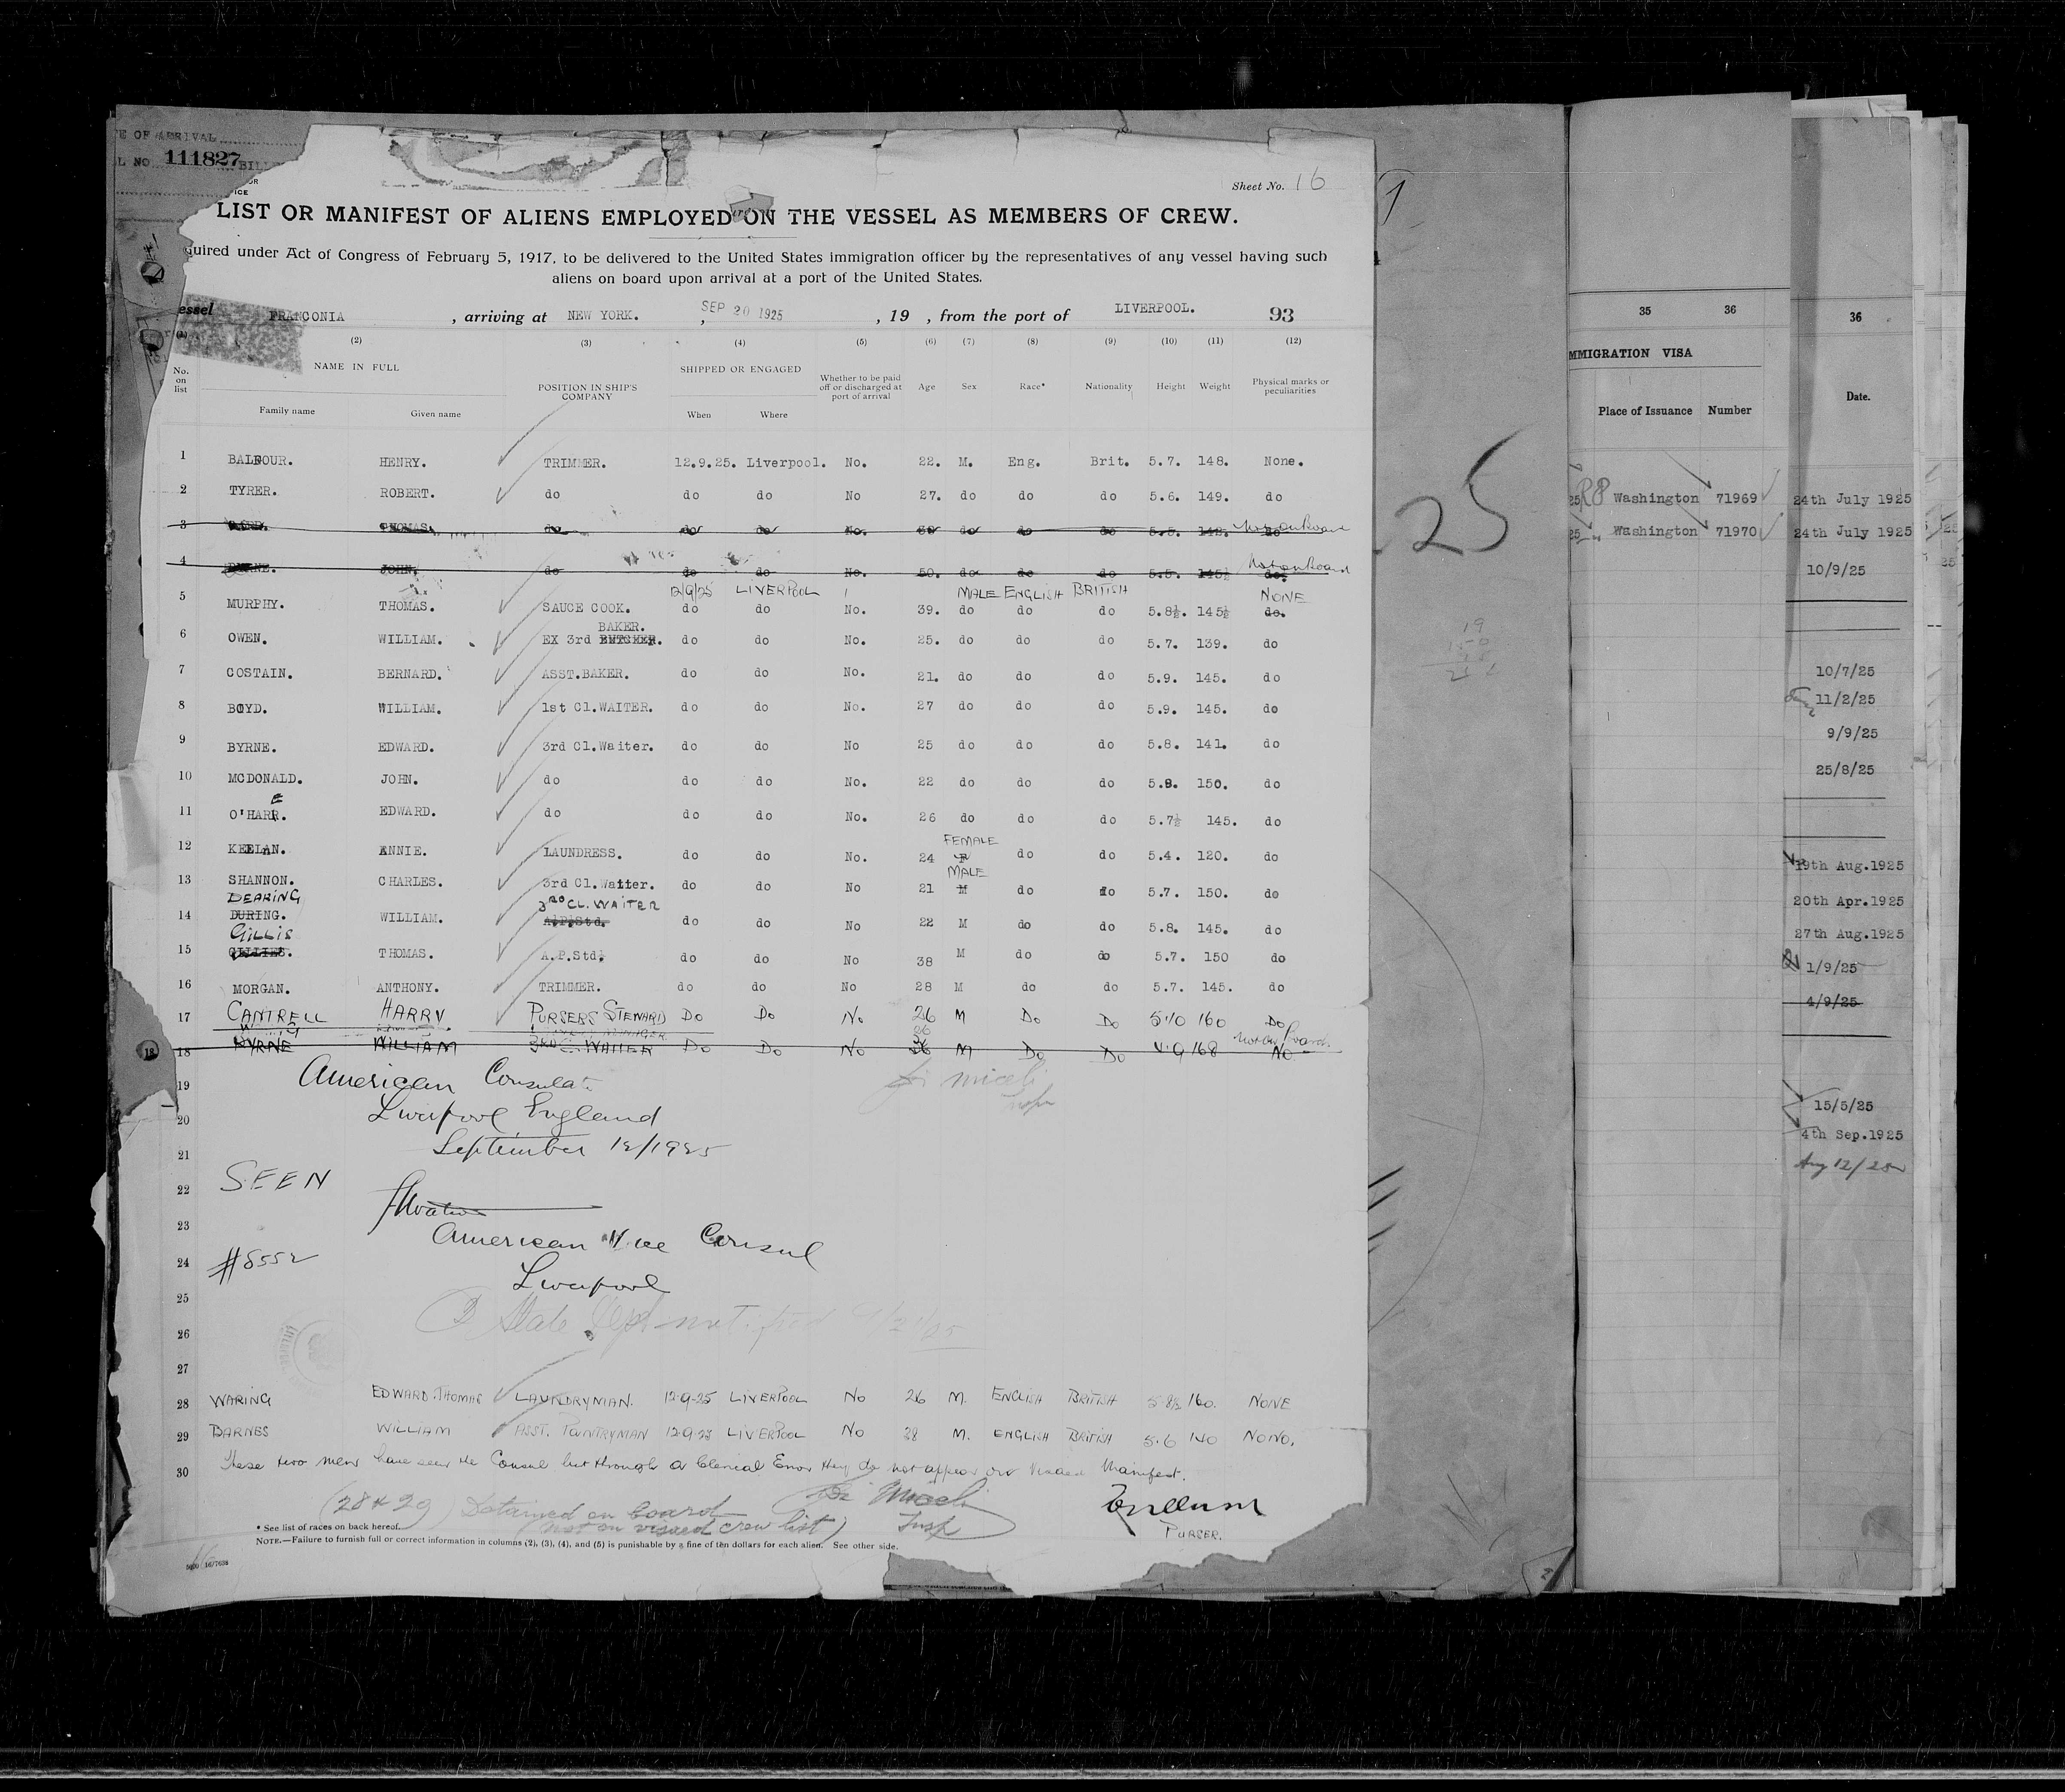 E OF ARRIVAL
L NO. 111827 BILL
OR
ICE
Sheet No. 16
LIST OR MANIFEST OF ALIENS EMPLOYED ON THE VESSEL AS MEMBERS OF CREW.
quired under Act of Congress of February 5, 1917, to be delivered to the United States immigration officer by the representatives of any vessel having such
aliens on board upon arrival at a port of the United States.
essel FRANCONIA, arriving at NEW YORK. SEP 20 1925, 19 , from the port of LIVERPOOL. 93
(2) (3) (4) (5) (6) (7) (8) (9) (10) (11) (12)
No. on list NAME IN FULL Family name Given name POSITION IN SHIP'S COMPANY SHIPPED OR ENGAGED When Where Whether to be paid off or discharged at port of arrival Age Sex Race* Nationality Height Weight Physical marks or peculiarities
1 BALFOUR. HENRY. TRIMMER. 12.9.25. Liverpool. No. 22. M. Eng. Brit. 5.7. 148. None.
2 TYRER. ROBERT. do do do No 27. do do do 5.6. 149. do
3 THOMAS. do do do No. do do do 5.5. 142. do Not on Board
4 JOHN. do do do No. 50. do do do 5.5. 145½ do. Not on Board
12/9/25 LIVERPOOL MALE ENGLISH BRITISH NONE
5 MURPHY. THOMAS. SAUCE COOK. do do No. 39. do do do 5.8½. 145½ do.
BAKER.
6 OWEN. WILLIAM. EX 3rd BUTCHER. do do No. 25. do do do 5.7. 139. do
7 COSTAIN. BERNARD. ASST.BAKER. do do No. 21. do do do 5.9. 145. do
8 BOYD. WILLIAM. 1st Cl.WAITER. do do No. 27 do do do 5.9. 145. do
9 BYRNE. EDWARD. 3rd Cl.Waiter. do do No 25 do do do 5.8. 141. do
10 MCDONALD. JOHN. do do do No. 22 do do do 5.8. 150. do
11 O'HARE. EDWARD. do do do No. 26 do do do 5.7½ 145. do
FEMALE
12 KEELAN. ANNIE. LAUNDRESS. do do No. 24 F do do 5.4. 120. do
MALE
13 SHANNON. CHARLES. 3rd Cl.Waiter. do do No 21 M do do 5.7. 150. do
DEARING 3RD CL. WAITER
14 DURING. WILLIAM. A.P.Std. do do No 22 M do do 5.8. 145. do
GILLIS
15 GILLIES. THOMAS. A.P.Std. do do No 38 M do do 5.7. 150 do
16 MORGAN. ANTHONY. TRIMMER. do do No 28 M do do 5.7. 145. do
17 CANTRELL HARRY PURSERS STEWARD Do Do No 26 M Do Do 5.10 160 Do
18 BYRNE WILLIAM 3RD C. WAITER Do Do No 26 M Do Do 168 No Not on Board.
19 American Consulate
20 Liverpool England
21 September 12/1925
22 SEEN
23 American Vice Consul
24 #8552
Liverpool
25
State Dept notified 9/21/25
26
27
28 WARING EDWARD THOMAS LAUNDRYMAN. 12-9-25 LIVERPOOL No 26 M. ENGLISH BRITISH 5.8½ 160. NONE
29 BARNES WILLIAM ASST. PANTRYMAN 12-9-25 LIVERPOOL No 28 M. ENGLISH BRITISH 5.6 140 NONO.
These two men have seen the Consul but through a Clerical Error they do not appear on Visaed Manifest.
30
(28 & 29) Detained on board
(not on visaed crew list) Insp
PURSER.
* See list of races on back hereof.
NOTE.—Failure to furnish full or correct information in columns (2), (3), (4), and (5) is punishable by a fine of ten dollars for each alien. See other side.
25
35 36
IMMIGRATION VISA
Place of Issuance Number
Washington 71969
Washington 71970
36
Date.
24th July 1925
24th July 1925
10/9/25
10/7/25
11/2/25
9/9/25
25/8/25
19th Aug.1925
20th Apr.1925
27th Aug.1925
1/9/25
4/9/25
15/5/25
4th Sep.1925
Aug 12/25